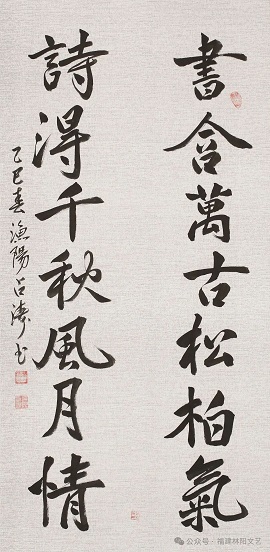 書含萬古松柏氣
詩得千秋風月情
乙巳春漁陽占濤书
公众号·福建林阳文艺